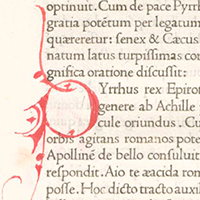 optinuit. Cum de pace Pyrrh
gratia potētum per legatum
quæreretur: senex & Cæcus
natum latus turpissimas con
gnifica oratione discussit:
PYrrhus rex Epirot
genere ab Achille p
cule oriundus. Cu
orbis agitans romanos pote
Apollinē de bello consuluit
respondit. Aio te æacida rom
posse. Hoc dicto tracto auxil